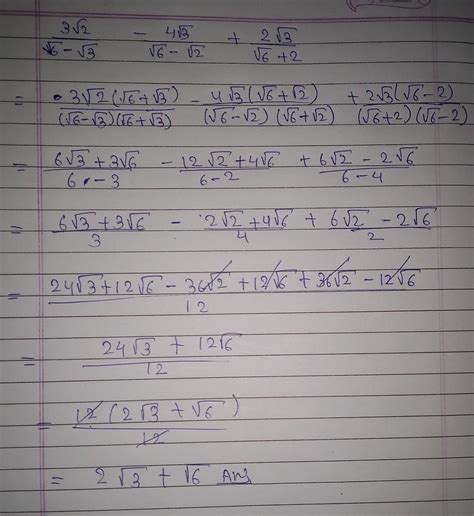 3√2/(√6-√3) - 4√3/(√6-√2) + 2√3/(√6+2)
= 3√2(√6+√3)/(√6-√3)(√6+√3) - 4√3(√6+√2)/(√6-√2)(√6+√2) + 2√3(√6-2)/(√6+2)(√6-2)
= (6√3+3√6)/(6-3) - (12√2+4√6)/(6-2) + (6√2-2√6)/(6-4)
= (6√3+3√6)/3 - (2√2+4√6)/4 + (6√2-2√6)/2
= (24√3+12√6-36√2+12√6+36√2-12√6)/12
= (24√3+12√6)/12
= 12(2√3+√6)/12
= 2√3+√6 Ans